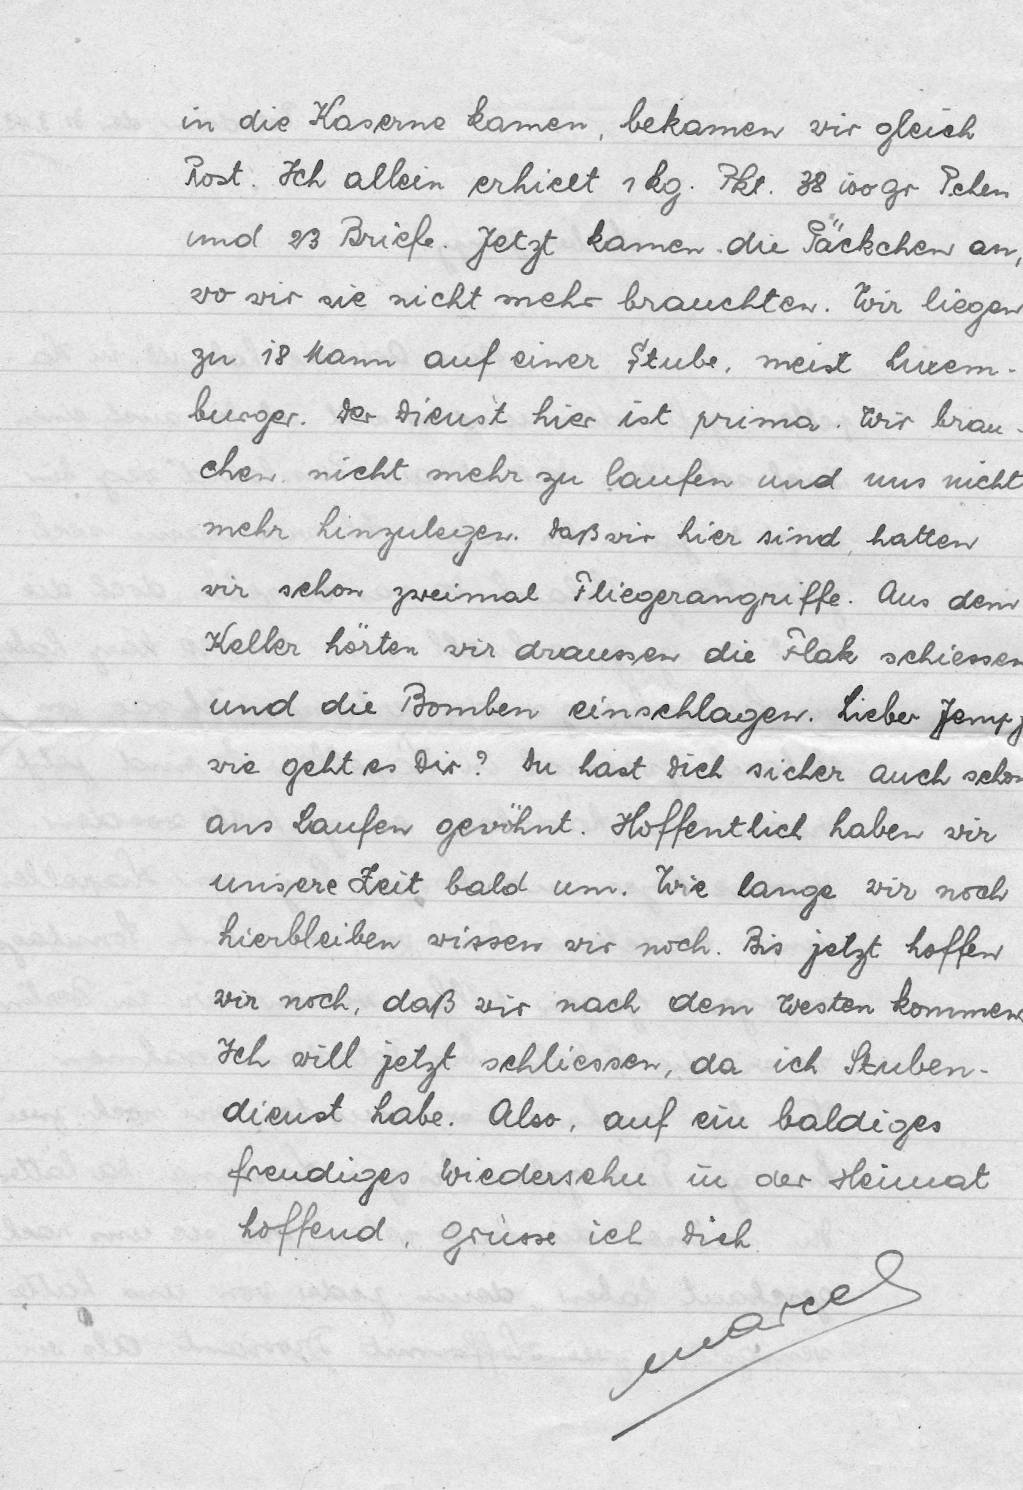 in die Kaserne kamen, bekamen wir gleich
Post. Ich allein erhielt 1 kg. Pkt. 38 100 gr Pchen
und 23 Briefe. Jetzt kamen die Päckchen an,
wo wir sie nicht mehr brauchten. Wir liegen
zu 18 Mann auf einer Stube, meist Luxem-
burger. Der Dienst hier ist prima. Wir brau-
chen nicht mehr zu laufen und uns nicht
mehr hinzulegen. Daß wir hier sind, hatten
wir schon zweimal Fliegerangriffe. Aus dem
Keller hörten wir draussen die Flak schiessen
und die Bomben einschlagen. Lieber Jempy
wie geht es Dir? Du hast Dich sicher auch schon
ans Laufen gewöhnt. Hoffentlich haben wir
unsere Zeit bald um. Wie lange wir noch
hierbleiben wissen wir noch. Bis jetzt hoffen
wir noch, daß wir nach dem Westen kommen
Ich will jetzt schliessen, da ich Stuben-
dienst habe. Also, auf ein baldiges
freudiges Wiedersehn in der Heimat
hoffend, grüsse ich Dich
Marcel